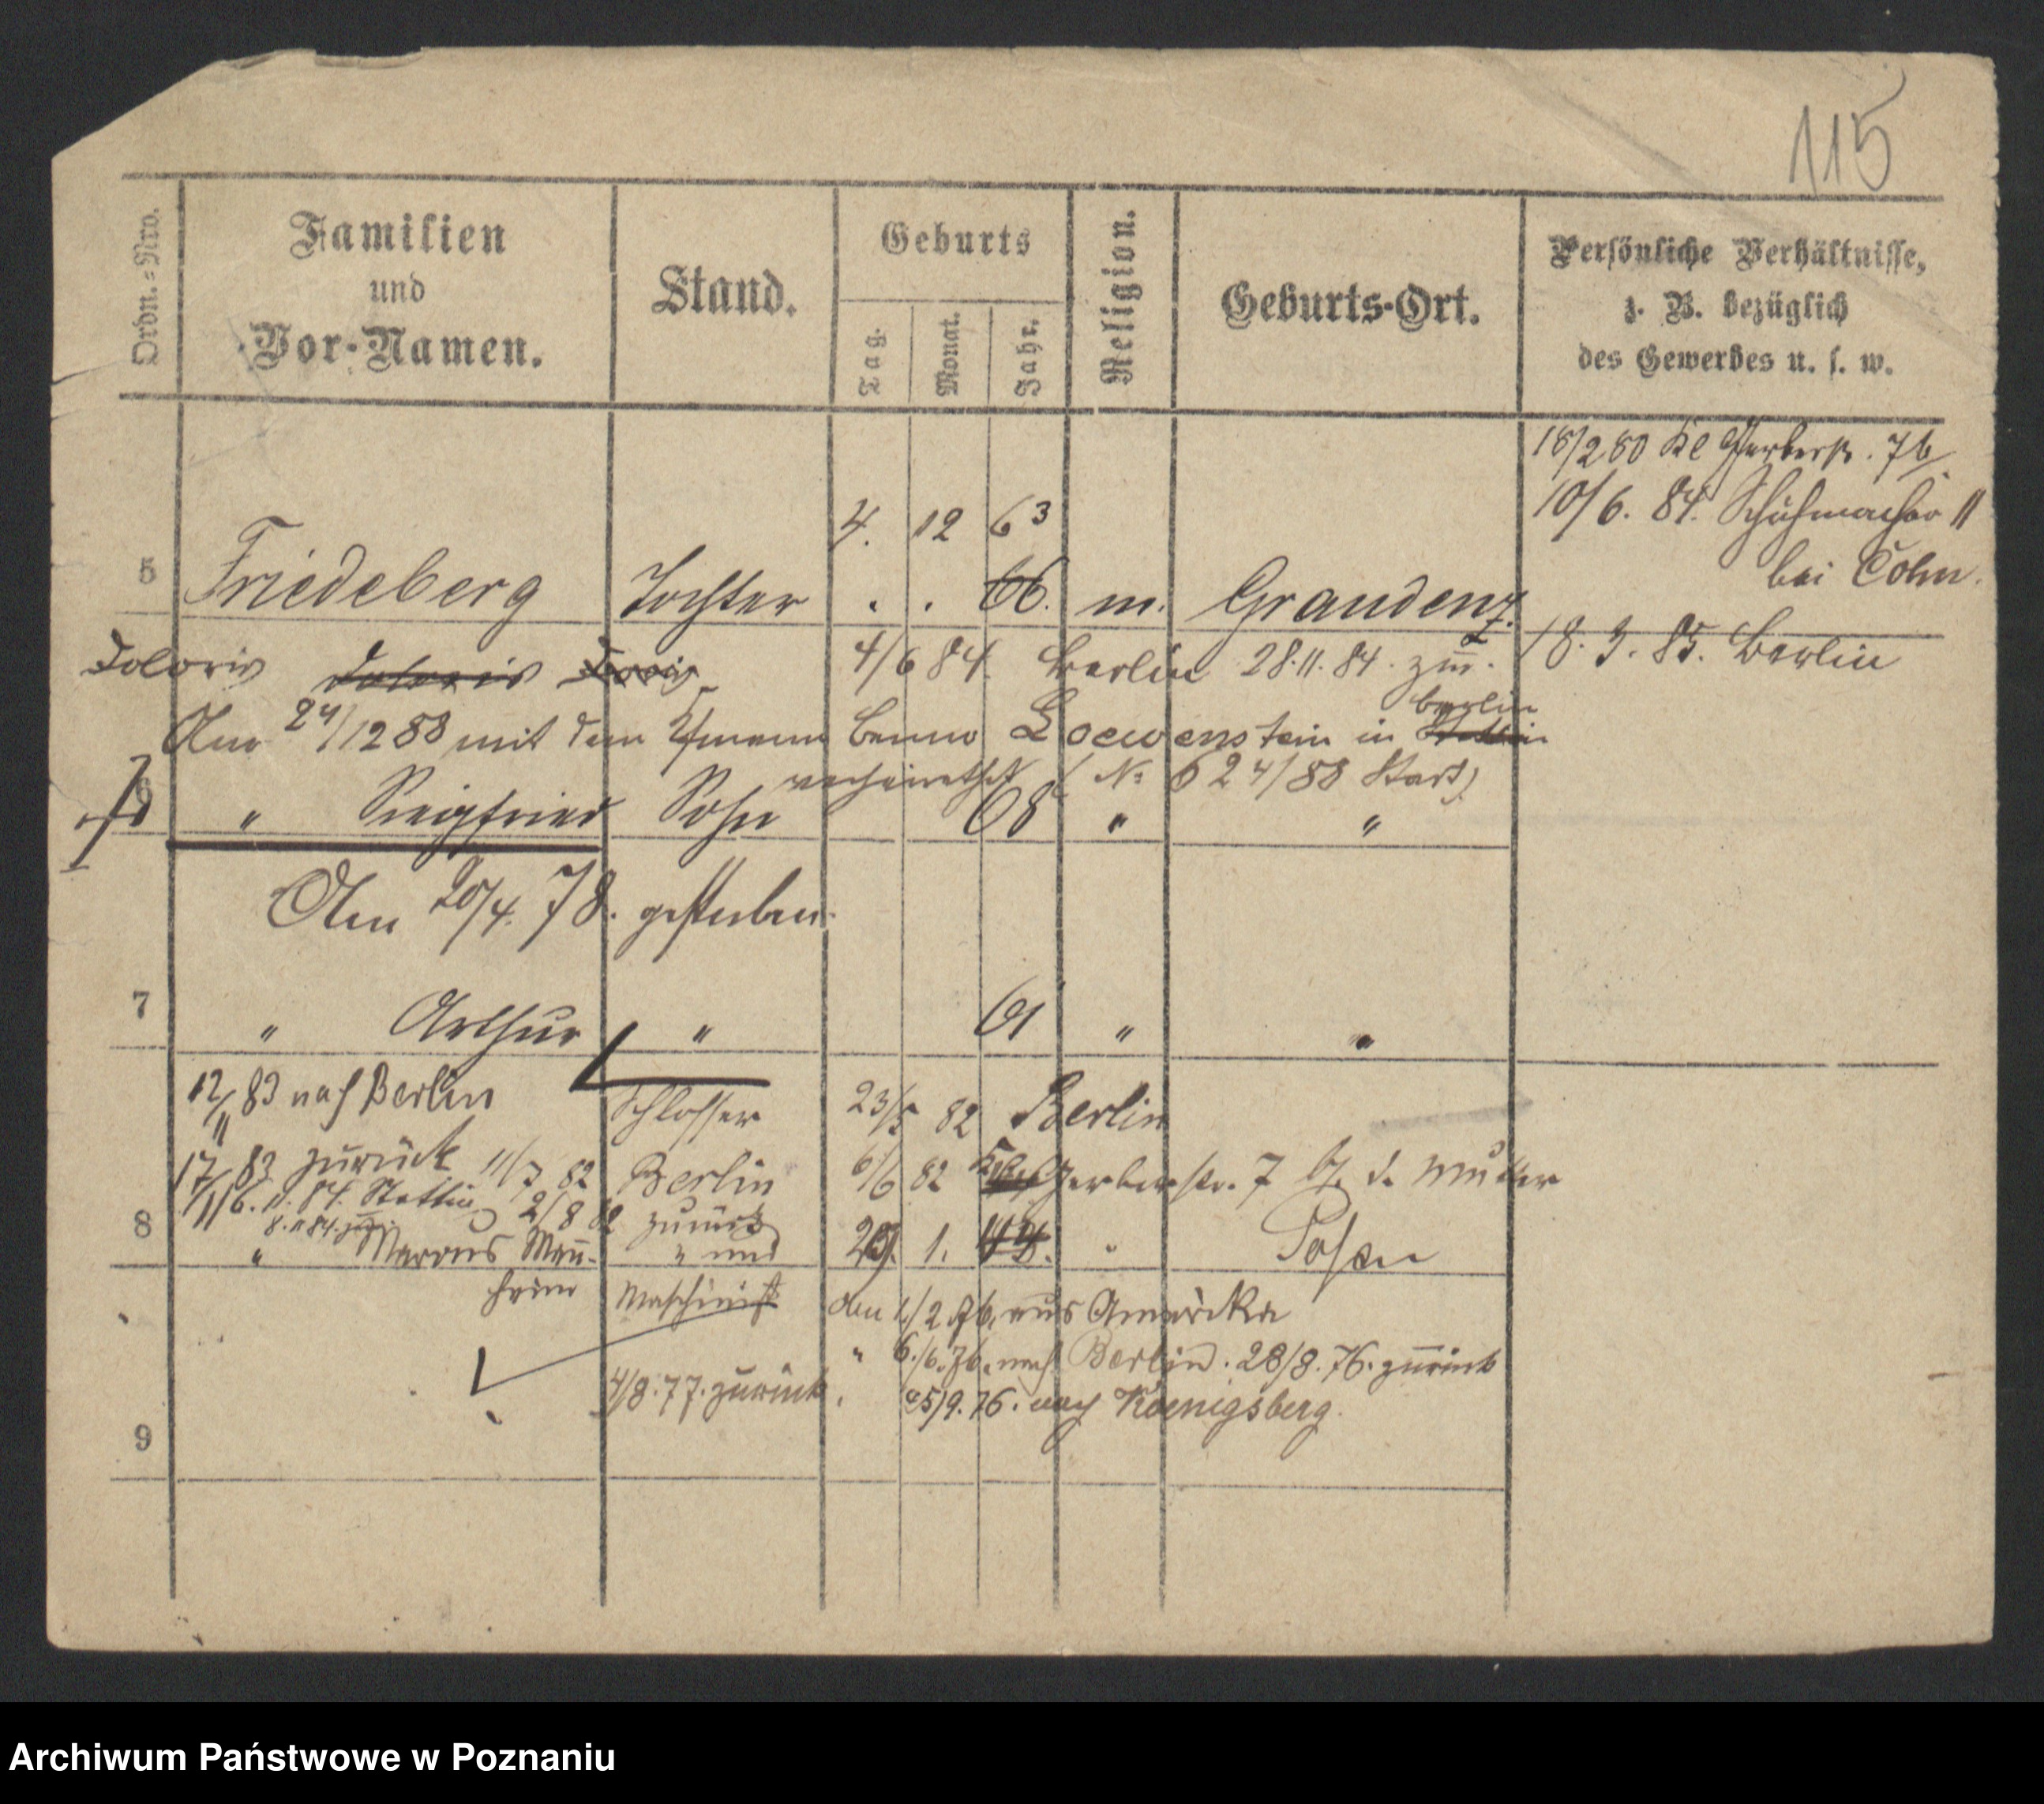 115
Ordn.-Nro.
Familien
und
Vor-Namen.
Stand.
Geburts
Tag.
Monat.
Jahr.
Religion.
Geburts-Ort.
Persönliche Verhältnisse,
z. B. bezüglich
des Gewerbes u. s. w.
18/2 80 Kl Gerberstr. 7b
10/6. 84. Schuhmacher 11
bei Cohn.
4. 12 63
5 Friedeberg Tochter . . 66. m. Graudenz.
Doloris Doloris Doris 4/6 84. Berlin 28.11.84. zur. 18. 3. 85. Berlin
Am 24/12 88 mit dem Kfmann Benno Loewenstein in Stettin berlin
verheirathet (No 624/88 Start)
6 " Siegfried Sohn 68 " "
Am 20/4. 78. gestorben.
7 " Arthur " 61 " "
12/11 83 nach Berlin Schlosser 23/5 82 Berlin
17/11 83 zurück 11/7 82 Berlin 6/6 82 Gerberstr. 7 b. d. Mutter
6. 11. 84. Stettin 2/8 82 zurück
8. 11 84. zur.
8 " Marcus Man- " und 20. 1. " Posen
heim Maschinist den 1/2 76. aus Amerika
" 6./6. 76. nach Berlin. 28/8. 76. zurück
4/8. 77. zurück. 25/9. 76. nach Koenigsberg.
9
Archiwum Państwowe w Poznaniu